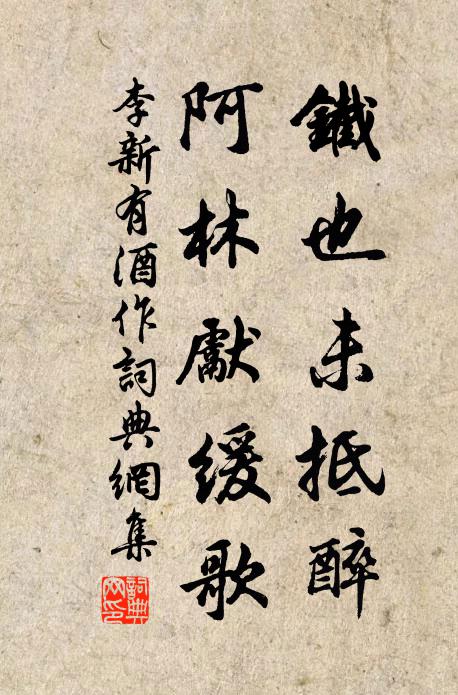 鐵也未抵醉
阿林獻緩歌
李新有酒作詞典網集
詞典网印